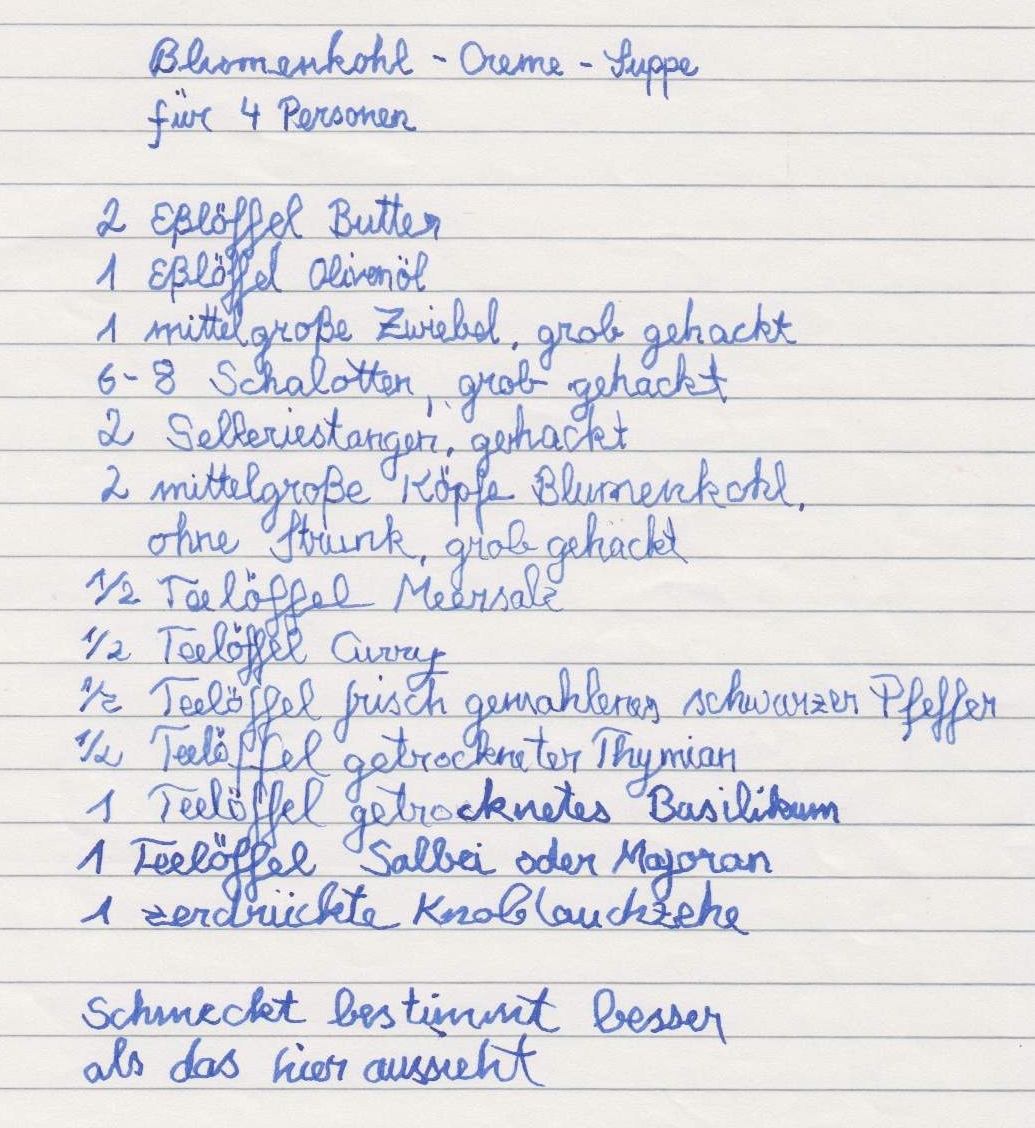 Blumenkohl - Creme - Suppe
für 4 Personen
2 Eßlöffel Butter
1 Eßlöffel Olivenöl
1 mittelgroße Zwiebel, grob gehackt
6-8 Schalotten, grob gehackt
2 Selleriestangen, gehackt
2 mittelgroße Köpfe Blumenkohl,
ohne Strunk, grob gehackt
1/2 Teelöffel Meersalz
1/2 Teelöffel Curry
1/2 Teelöffel frisch gemahlener schwarzer Pfeffer
1/2 Teelöffel getrockneter Thymian
1 Teelöffel getrocknetes Basilikum
1 Teelöffel Salbei oder Majoran
1 zerdrückte Knoblauchzehe
Schmeckt bestimmt besser
als das hier aussieht